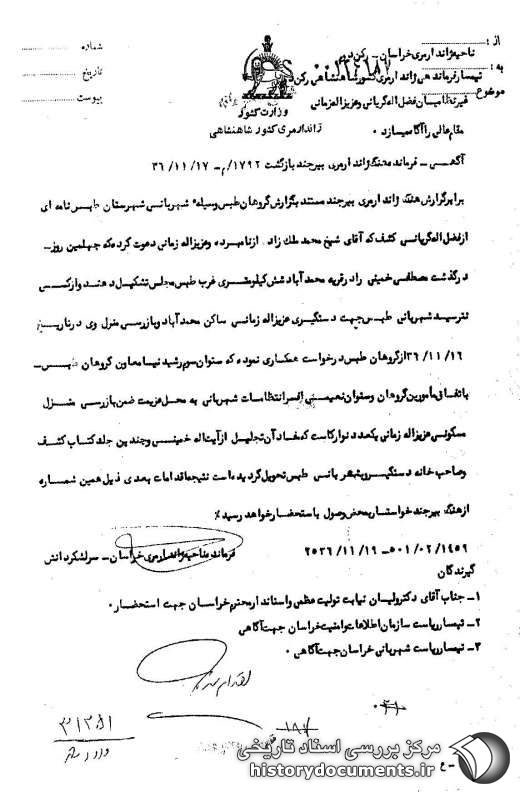 از : ناحیه ژاندارمری خراسان - رکن دوم
شماره
به : تیمسار فرماندهی ژاندارمری کشور شاهنشاهی رکن
تاریخ
موضوع غیرنظامیان فضل اله گریانی و عزیزاله زمانی
پیوست
وزارت کشور
ژاندارمری کشور شاهنشاهی
مقام عالی را آگاه میسازد .
آگهی - فرمانده هنگ ژاندارمری بیرجند بازگشت ۱۷۹۲/م - ۳۶/۱۱/۱۷
برابر گزارش هنگ ژاندارمری بیرجند مستند بگزارش گروهان طبس وسیله شهربانی شهرستان طبس نامه ای
از فضل اله گریانی کشف که آقای شیخ محمد ملک زاده از نامبرده و عزیزاله زمانی دعوت کرده که چهلمین روز -
درگذشت مصطفی خمینی را در قریه محمدآباد شش کیلومتری غرب طبس مجلس تشکیل دهند و از کسی
نترسید شهربانی طبس جهت دستگیری عزیزاله زمانی ساکن محمدآباد و بازرسی منزل وی در تاریخ
۳۶/۱۱/۱۶ از گروهان طبس درخواست همکاری نموده که ستوان سوم رشید نیا معاون گروهان طبس -
باتفاق مأمورین گروهان و ستوان نعیمی افسر انتظامات شهربانی به محل عزیمت ضمن بازرسی منزل
مسکونی عزیزاله زمانی یکعدد نوار کاست که مفاد آن تجلیل از آیت اله خمینی و چندین جلد کتاب کشف
و صاحب خانه دستگیر و بشهربانی طبس تحویل گردیده است نتیجه اقدامات بعدی ذیل همین شماره
از هنگ بیرجند خواستار بمحض وصول باستحضار خواهد رسید٪
۵۰۱/۰۲/۱۴۵۹ - ۲۵۳۶/۱۱/۱۹
فرمانده ناحیه ژاندارمری خراسان - سرلشکر دانش
گیرندگان
۱- جناب آقای دکتر ولیان نیابت تولیت عظمی و استاندار محترم خراسان جهت استحضار .
۲- تیمسار ریاست سازمان اطلاعات و امنیت خراسان جهت آگاهی
۳- تیمسار ریاست شهربانی خراسان جهت آگاهی .
مرکز بررسی اسناد تاریخی
historydocuments.ir